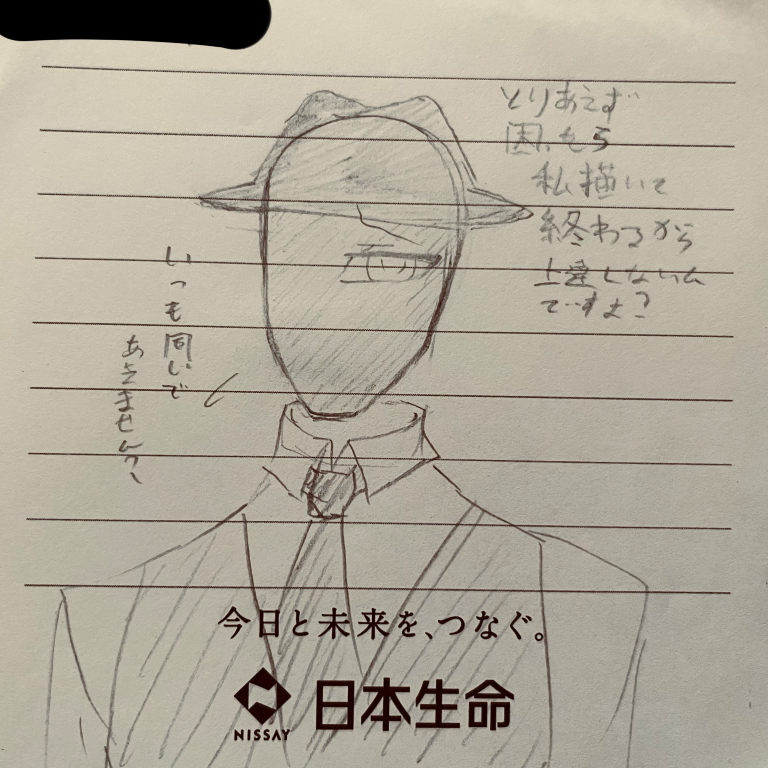 とりあえず
困ったら
私描いて
終わるから
上達しないん
ですよ?
いつも同じで
あきません?
今日と未来を、つなぐ。
NISSAY
日本生命